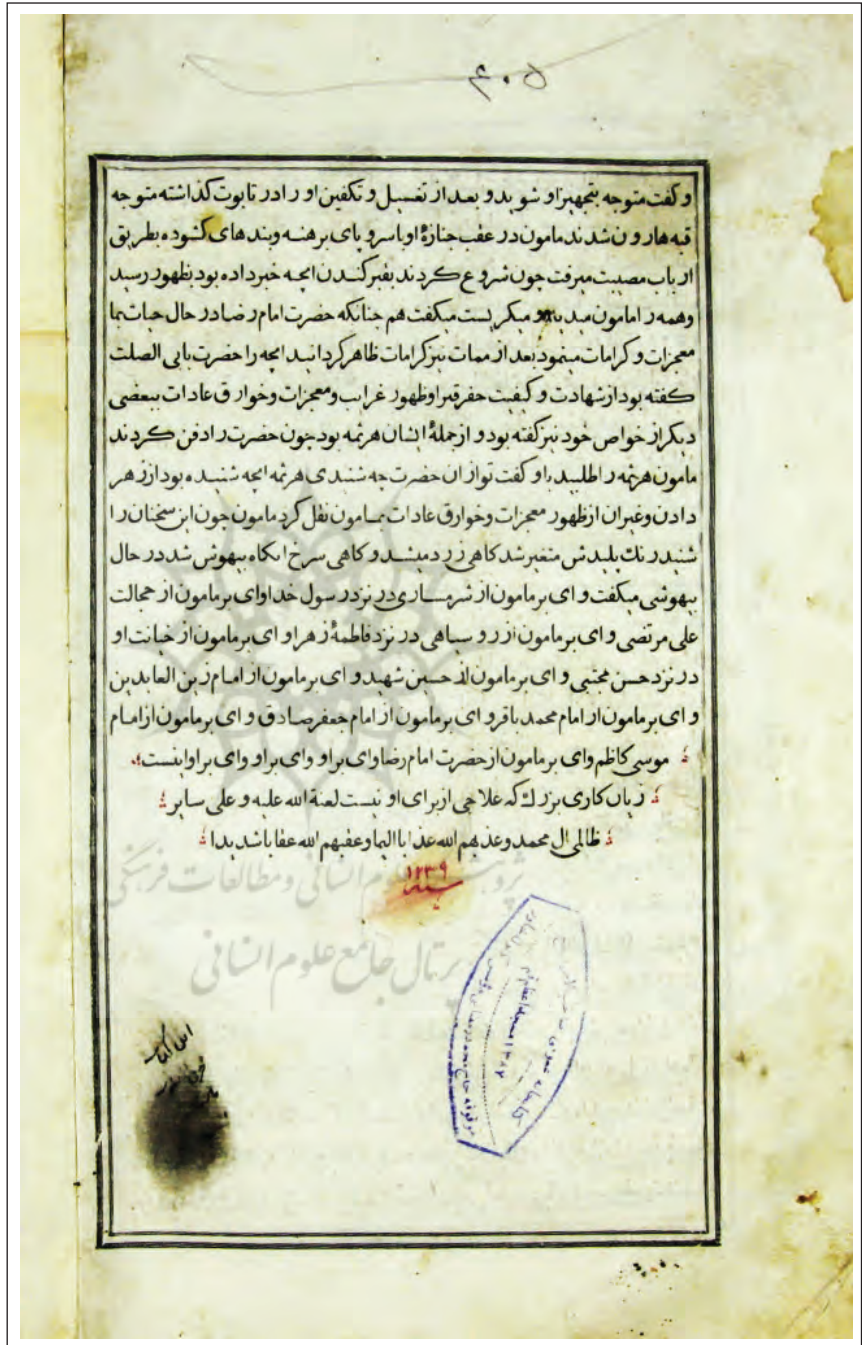 ۴۰۵
و کفت متوجه بتجهیز او شوید و بعد از تغسیل و تکفین او را در تابوت کذاشته متوجه
قبه هارون شدند مامون در عقب جنازهٔ او با سر و پای برهنه و بندهای کشوده بطریق
ارباب مصیبت میرفت چون شروع کردند بقبر کندن انچه خبر داده بود بظهور رسید
و همه را مامون میدید و میکریست میکفت هم چنانکه حضرت امام رضا در حال حیات بما
معجزات و کرامات مینمود بعد از ممات نیز کرامات ظاهر کردانید انچه را حضرت بابی الصلت
کفته بود از شهادت و کیفیت حفر قبر او ظهور غرایب و معجزات و خوارق عادات ببعضی
دیکر از خواص خود نیز کفته بود و از جملهٔ ایشان هرثمه بود چون حضرت را دفن کردند
مامون هرثمه را طلبید باو کفت تو از ان حضرت چه شنیدی هرثمه انچه شنیده بود از زهر
دادن و غیر ان از ظهور معجزات و خوارق عادات بمامون نقل کرد مامون چون این سخنان را
شنید رنك پلیدش متغیر شد کاهی زرد میشد و کاهی سرخ انکاه بیهوش شد در حال
بیهوشی میکفت وای بر مامون از شرمساری در نزد رسول خدا وای بر مامون از خجالت
علی مرتضی و ای بر مامون از رو سیاهی در نزد فاطمهٔ زهرا و ای بر مامون از خیانت او
در نزد حسن مجتبی و ای بر مامون از حسین شهید و ای بر مامون از امام زین العابدین
و ای بر مامون از امام محمد باقر و ای بر مامون از امام جعفر صادق و ای بر مامون از امام
موسی کاظم وای بر مامون از حضرت امام رضا وای بر او وای بر او وای بر او اینست
زیان کاری بزرك که علاجی از برای او نیست لعنة الله علیه و علی سایر
ظالمی ال محمد و عذبهم الله عذابا الیما و عقبهم الله عقابا شدیدا
۱۲۳۹
سنه
علوم انسانی و مطالعات فرهنگی
پرتال جامع علوم انسانی
این کتاب